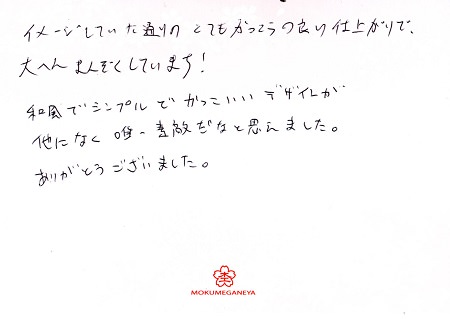 イメージしていた通りの とてもかっこうの良い仕上がりで、
大へんまんぞくしています!
和風でシンプルで かっこいい デザインが
他になく 唯一素敵だなと思えました。
ありがとうございました。
MOKUMEGANEYA